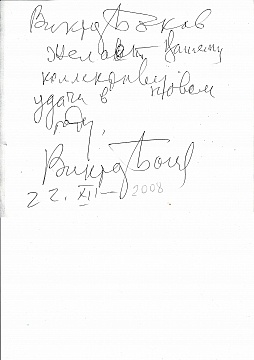 Виктор Боков
желает Вашему
коллективу
удачи в новом
году.
Виктор Боков
22. XII — 2008